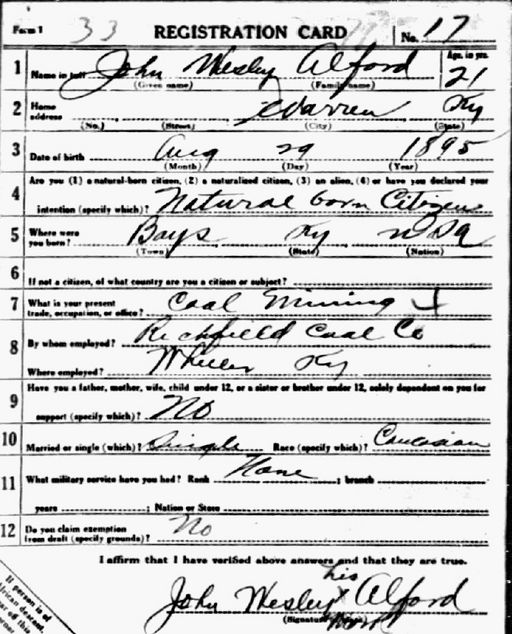 Form 1 33 REGISTRATION CARD No. 17
1 Name in full John Wesley Alford Age, in yrs. 21
(Given name) (Family name)
2 Home address Warren Ky
(No.) (Street) (City) (State)
3 Date of birth Aug 29 1895
(Month) (Day) (Year)
4 Are you (1) a natural-born citizen, (2) a naturalized citizen, (3) an alien, (4) or have you declared your
intention (specify which)? Natural born Citizen
5 Where were you born? Bays Ky USA
(Town) (State) (Nation)
6 If not a citizen, of what country are you a citizen or subject?
7 What is your present trade, occupation, or office? Coal Mining
8 By whom employed? Richfield Coal Co
Where employed? Ky
9 Have you a father, mother, wife, child under 12, or a sister or brother under 12, solely dependent on you for
support (specify which)? No
10 Married or single (which)? Single Race (specify which)? Caucasian
11 What military service have you had? Rank None ; branch
years ; Nation or State
12 Do you claim exemption from draft (specify grounds)? No
I affirm that I have verified above answers and that they are true.
his
John Wesley x Alford
(Signature mark)
If person is of
African descent,